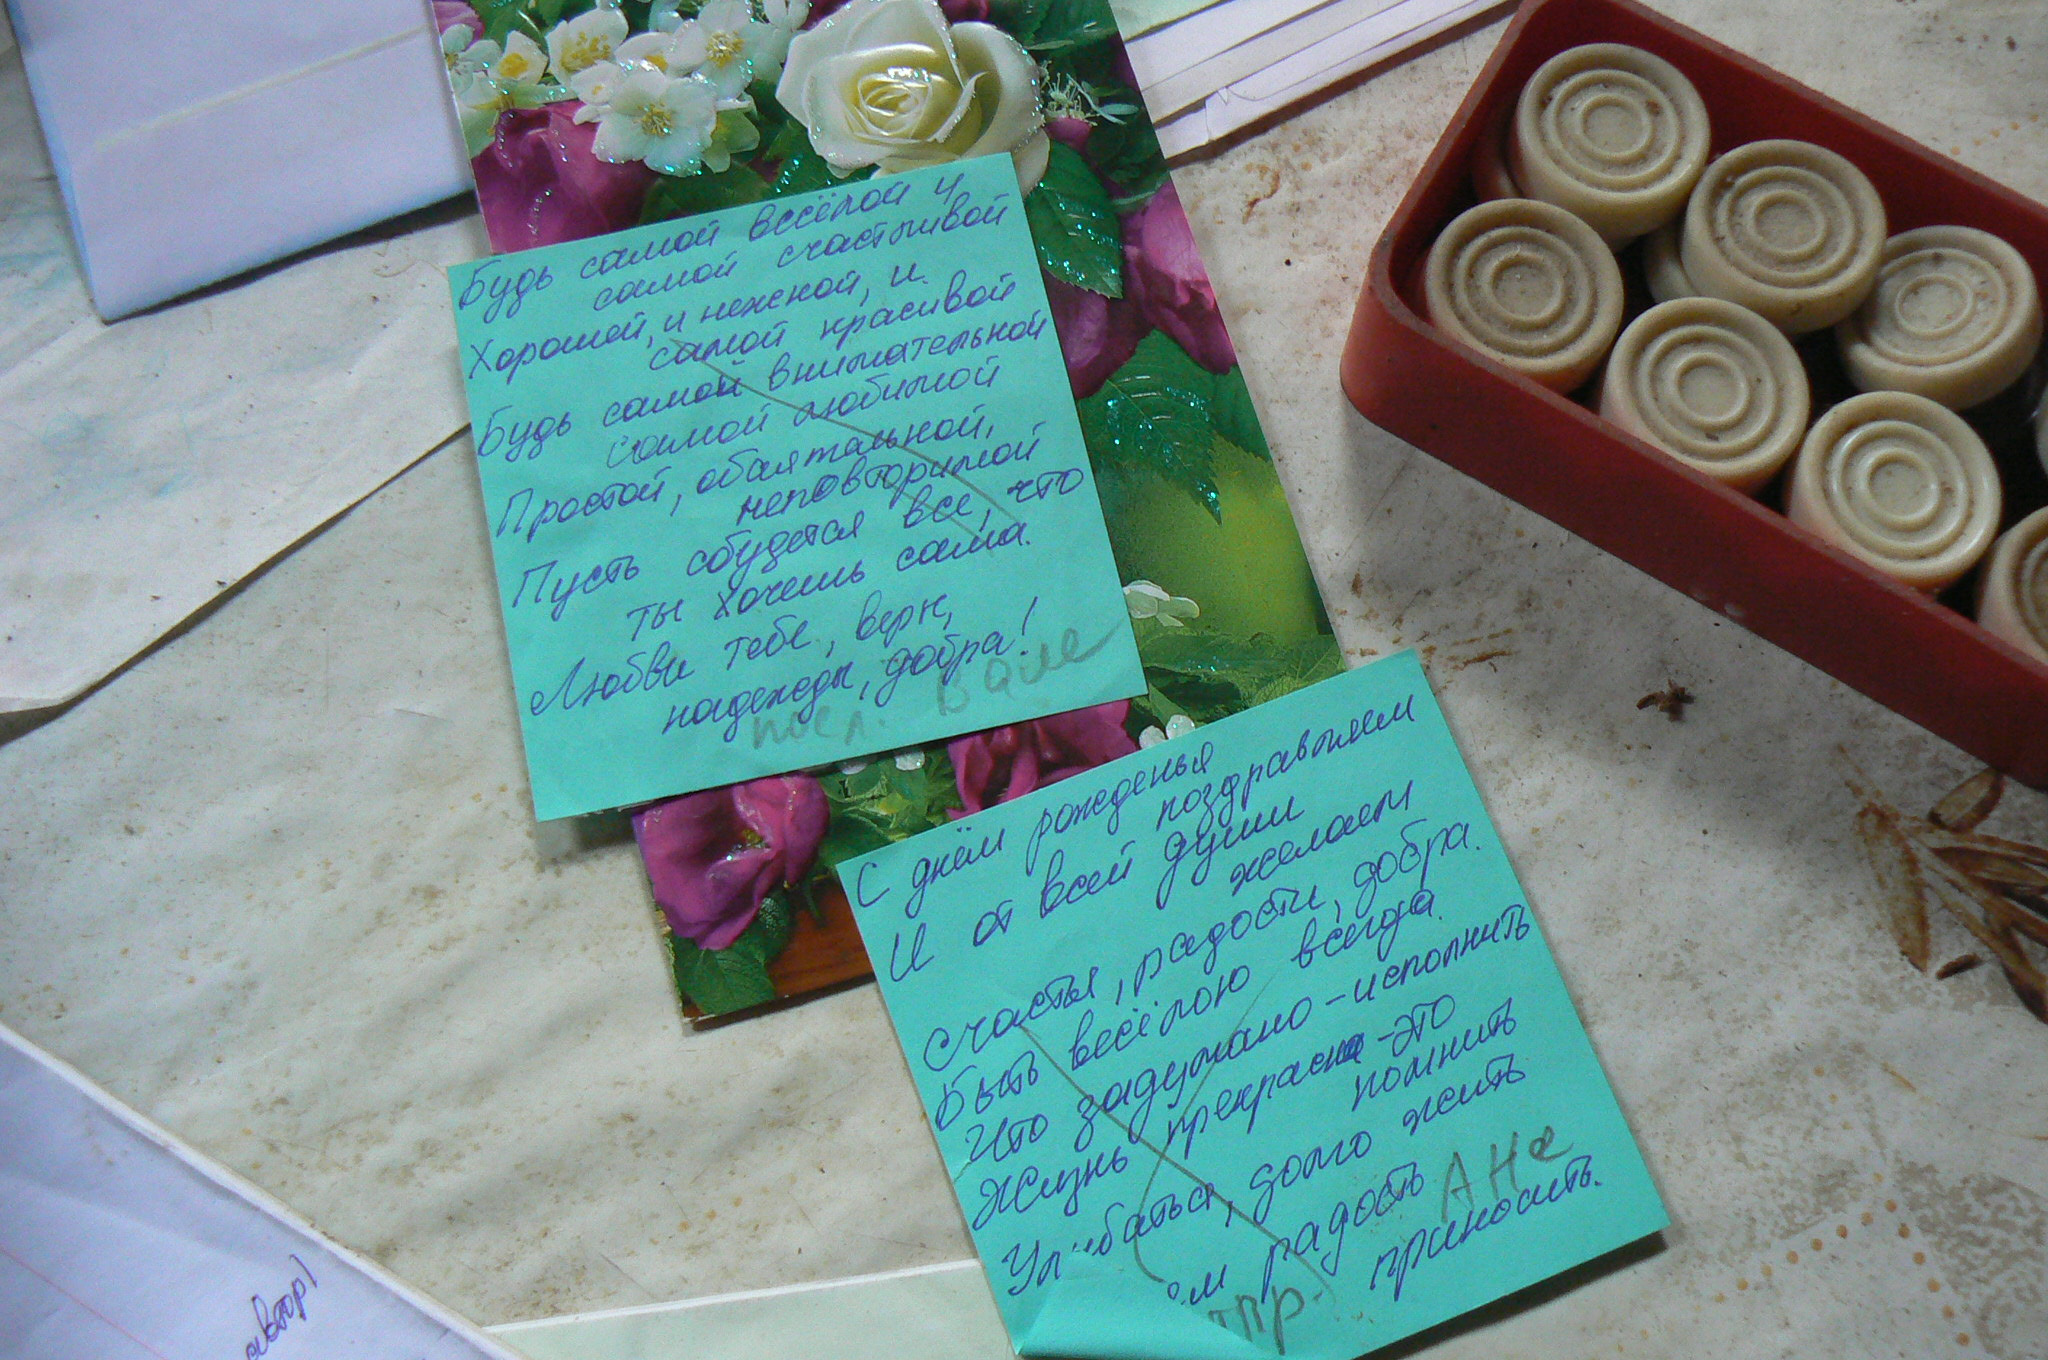 Будь самой весёлой и
самой счастливой
Хорошей, и нежной, и
самой красивой
Будь самой внимательной
самой любимой
Простой, обаятельной,
неповторимой
Пусть сбудется все, что
ты хочешь сама.
Любви тебе, верн,
надежды, добра!
посл. Вале
С днём рожденья
поздравляем
И от всей души
желаем
Счастья, радости, добра.
Быть весёлою всегда.
Что задумано - исполнить
Жизнь прекрасна - это
помнить
Улыбаться, долго жить
ям радость
приносить.
Ане
тпр.
автор)